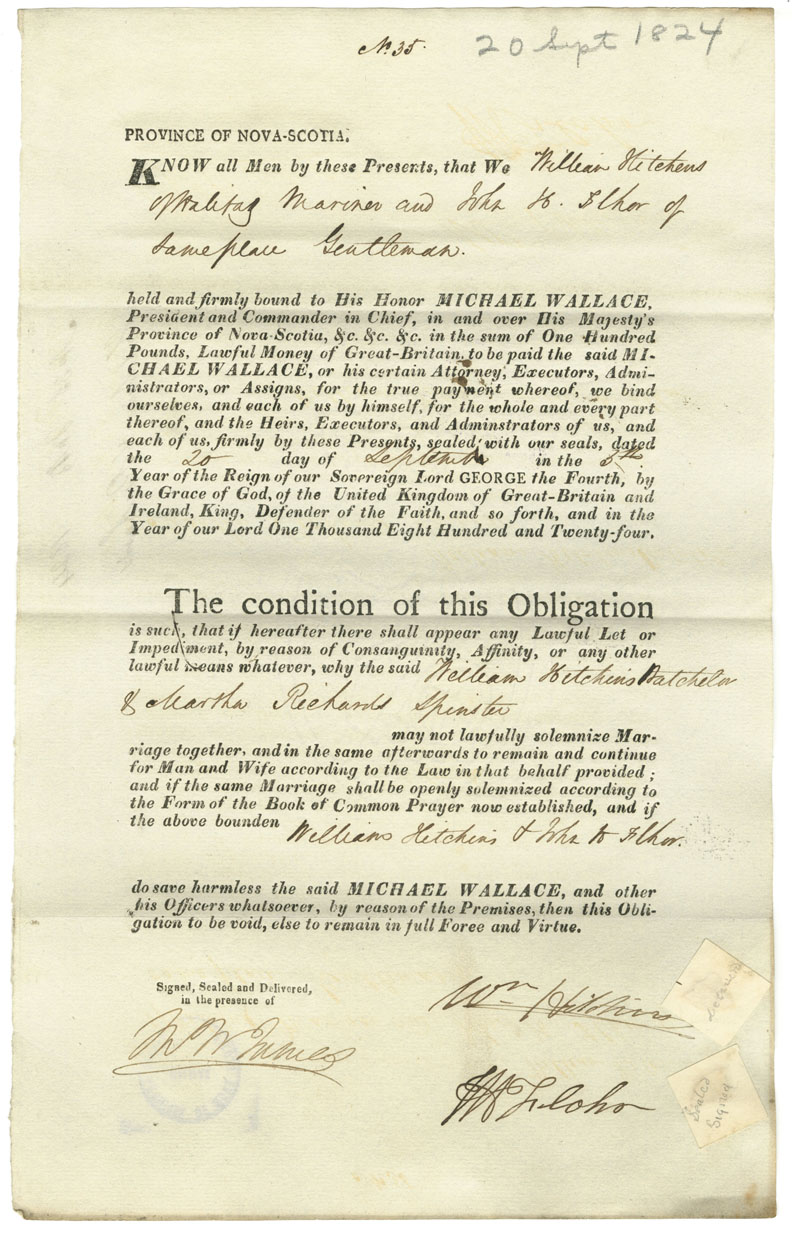 No. 35.
20 Sept 1824
PROVINCE OF NOVA-SCOTIA.
KNOW all Men by these Presents, that We William Hitchens
of Halifax Mariner and John H. Flhor of
Same place Gentleman.
held and firmly bound to His Honor MICHAEL WALLACE,
President and Commander in Chief, in and over His Majesty's
Province of Nova-Scotia, &c. &c. &c. in the sum of One Hundred
Pounds, Lawful Money of Great-Britain, to be paid the said MI-
CHAEL WALLACE, or his certain Attorney, Executors, Admi-
nistrators, or Assigns, for the true payment whereof, we bind
ourselves, and each of us by himself, for the whole and every part
thereof, and the Heirs, Executors, and Adminstrators of us, and
each of us, firmly by these Presents, sealed with our seals, dated
the 20 day of September in the 5th
Year of the Reign of our Sovereign Lord GEORGE the Fourth, by
the Grace of God, of the United Kingdom of Great-Britain and
Ireland, King, Defender of the Faith, and so forth, and in the
Year of our Lord One Thousand Eight Hundred and Twenty-four.
The condition of this Obligation
is such, that if hereafter there shall appear any Lawful Let or
Impediment, by reason of Consanguinity, Affinity, or any other
lawful means whatever, why the said William Hitchins Batchelor
& Martha Richards Spinster
may not lawfully solemnize Mar-
riage together, and in the same afterwards to remain and continue
for Man and Wife according to the Law in that behalf provided;
and if the same Marriage shall be openly solemnized according to
the Form of the Book of Common Prayer now established, and if
the above bounden William Hitchins & John H Flhor.
do save harmless the said MICHAEL WALLACE, and other
his Officers whatsoever, by reason of the Premises, then this Obli-
gation to be void, else to remain in full Foree and Virtue.
Signed, Sealed and Delivered,
in the presence of
Wm Hitchins
JH Flohr
Sealed
Signed